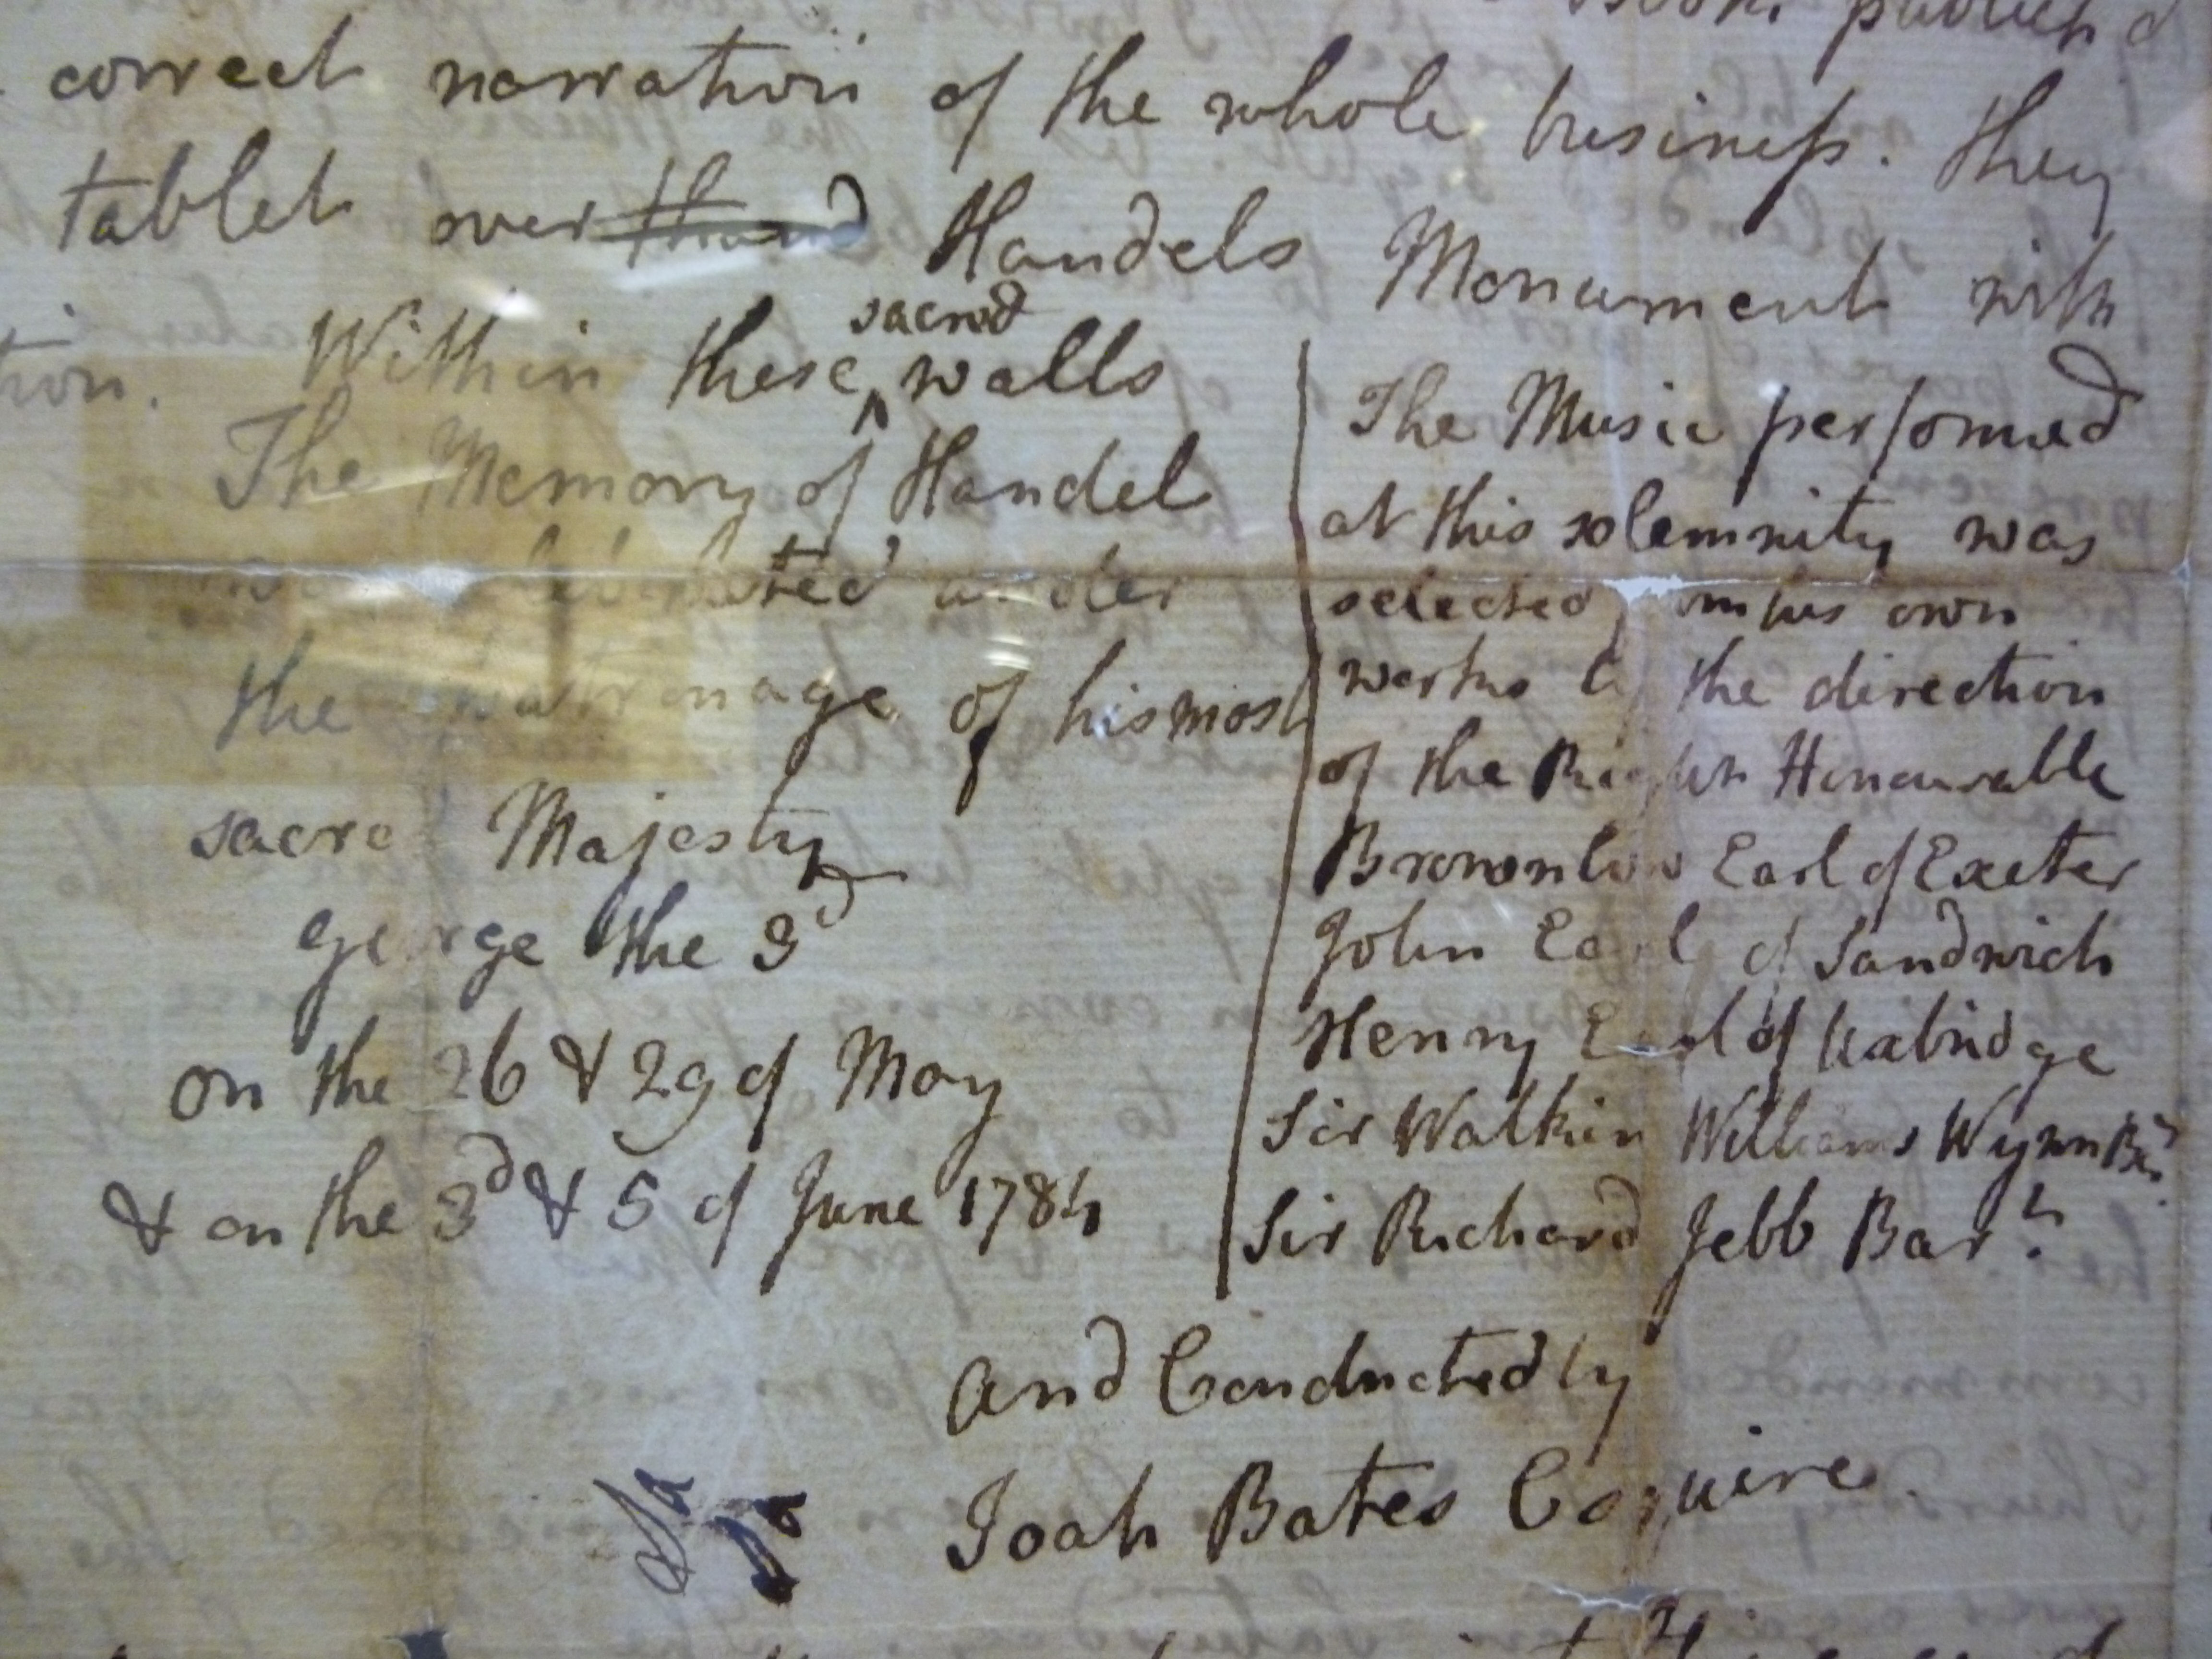 Book publish'd
correct narration of the whole business. they
tablet over Handels Monument with
tion.
Within these sacred walls
The Memory of Handel
was celebrated under
the patronage of his most
sacred Majesty
George the 3d
on the 26 & 29 of May
& on the 3d & 5 of June 1784
The Music performed
at this solemnity was
selected from his own
works by the direction
of the Right Honourable
Brownlow Earl of Exeter
John Earl of Sandwich
Henry Earl of Uxbridge
Sir Watkin Williams Wynn Bart
Sir Richard Jebb Bart
and Conducted by
Joah Bates Esquire.